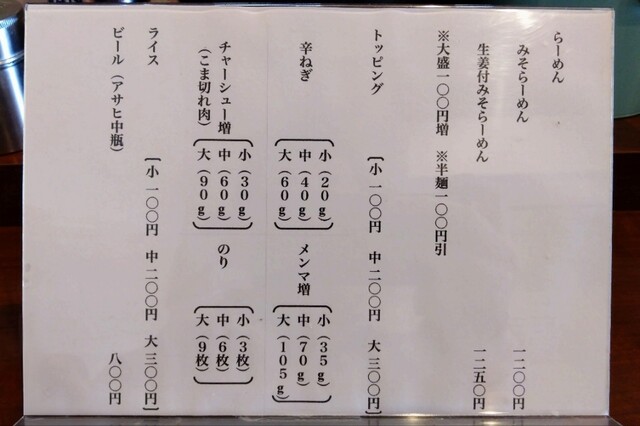 らーめん
みそらーめん 一二〇〇円
生姜付みそらーめん 一二五〇円
※大盛一〇〇円増 ※半麺一〇〇円引
トッピング 〔小 一〇〇円 中 二〇〇円 大 三〇〇円〕
辛ねぎ
小（20g）
中（40g）
大（60g）
メンマ増
小（35g）
中（70g）
大（105g）
チャーシュー増
（こま切れ肉）
小（30g）
中（60g）
大（90g）
のり
小（3枚）
中（6枚）
大（9枚）
ライス 〔小 一〇〇円 中 二〇〇円 大 三〇〇円〕
ビール（アサヒ中瓶） 八〇〇円